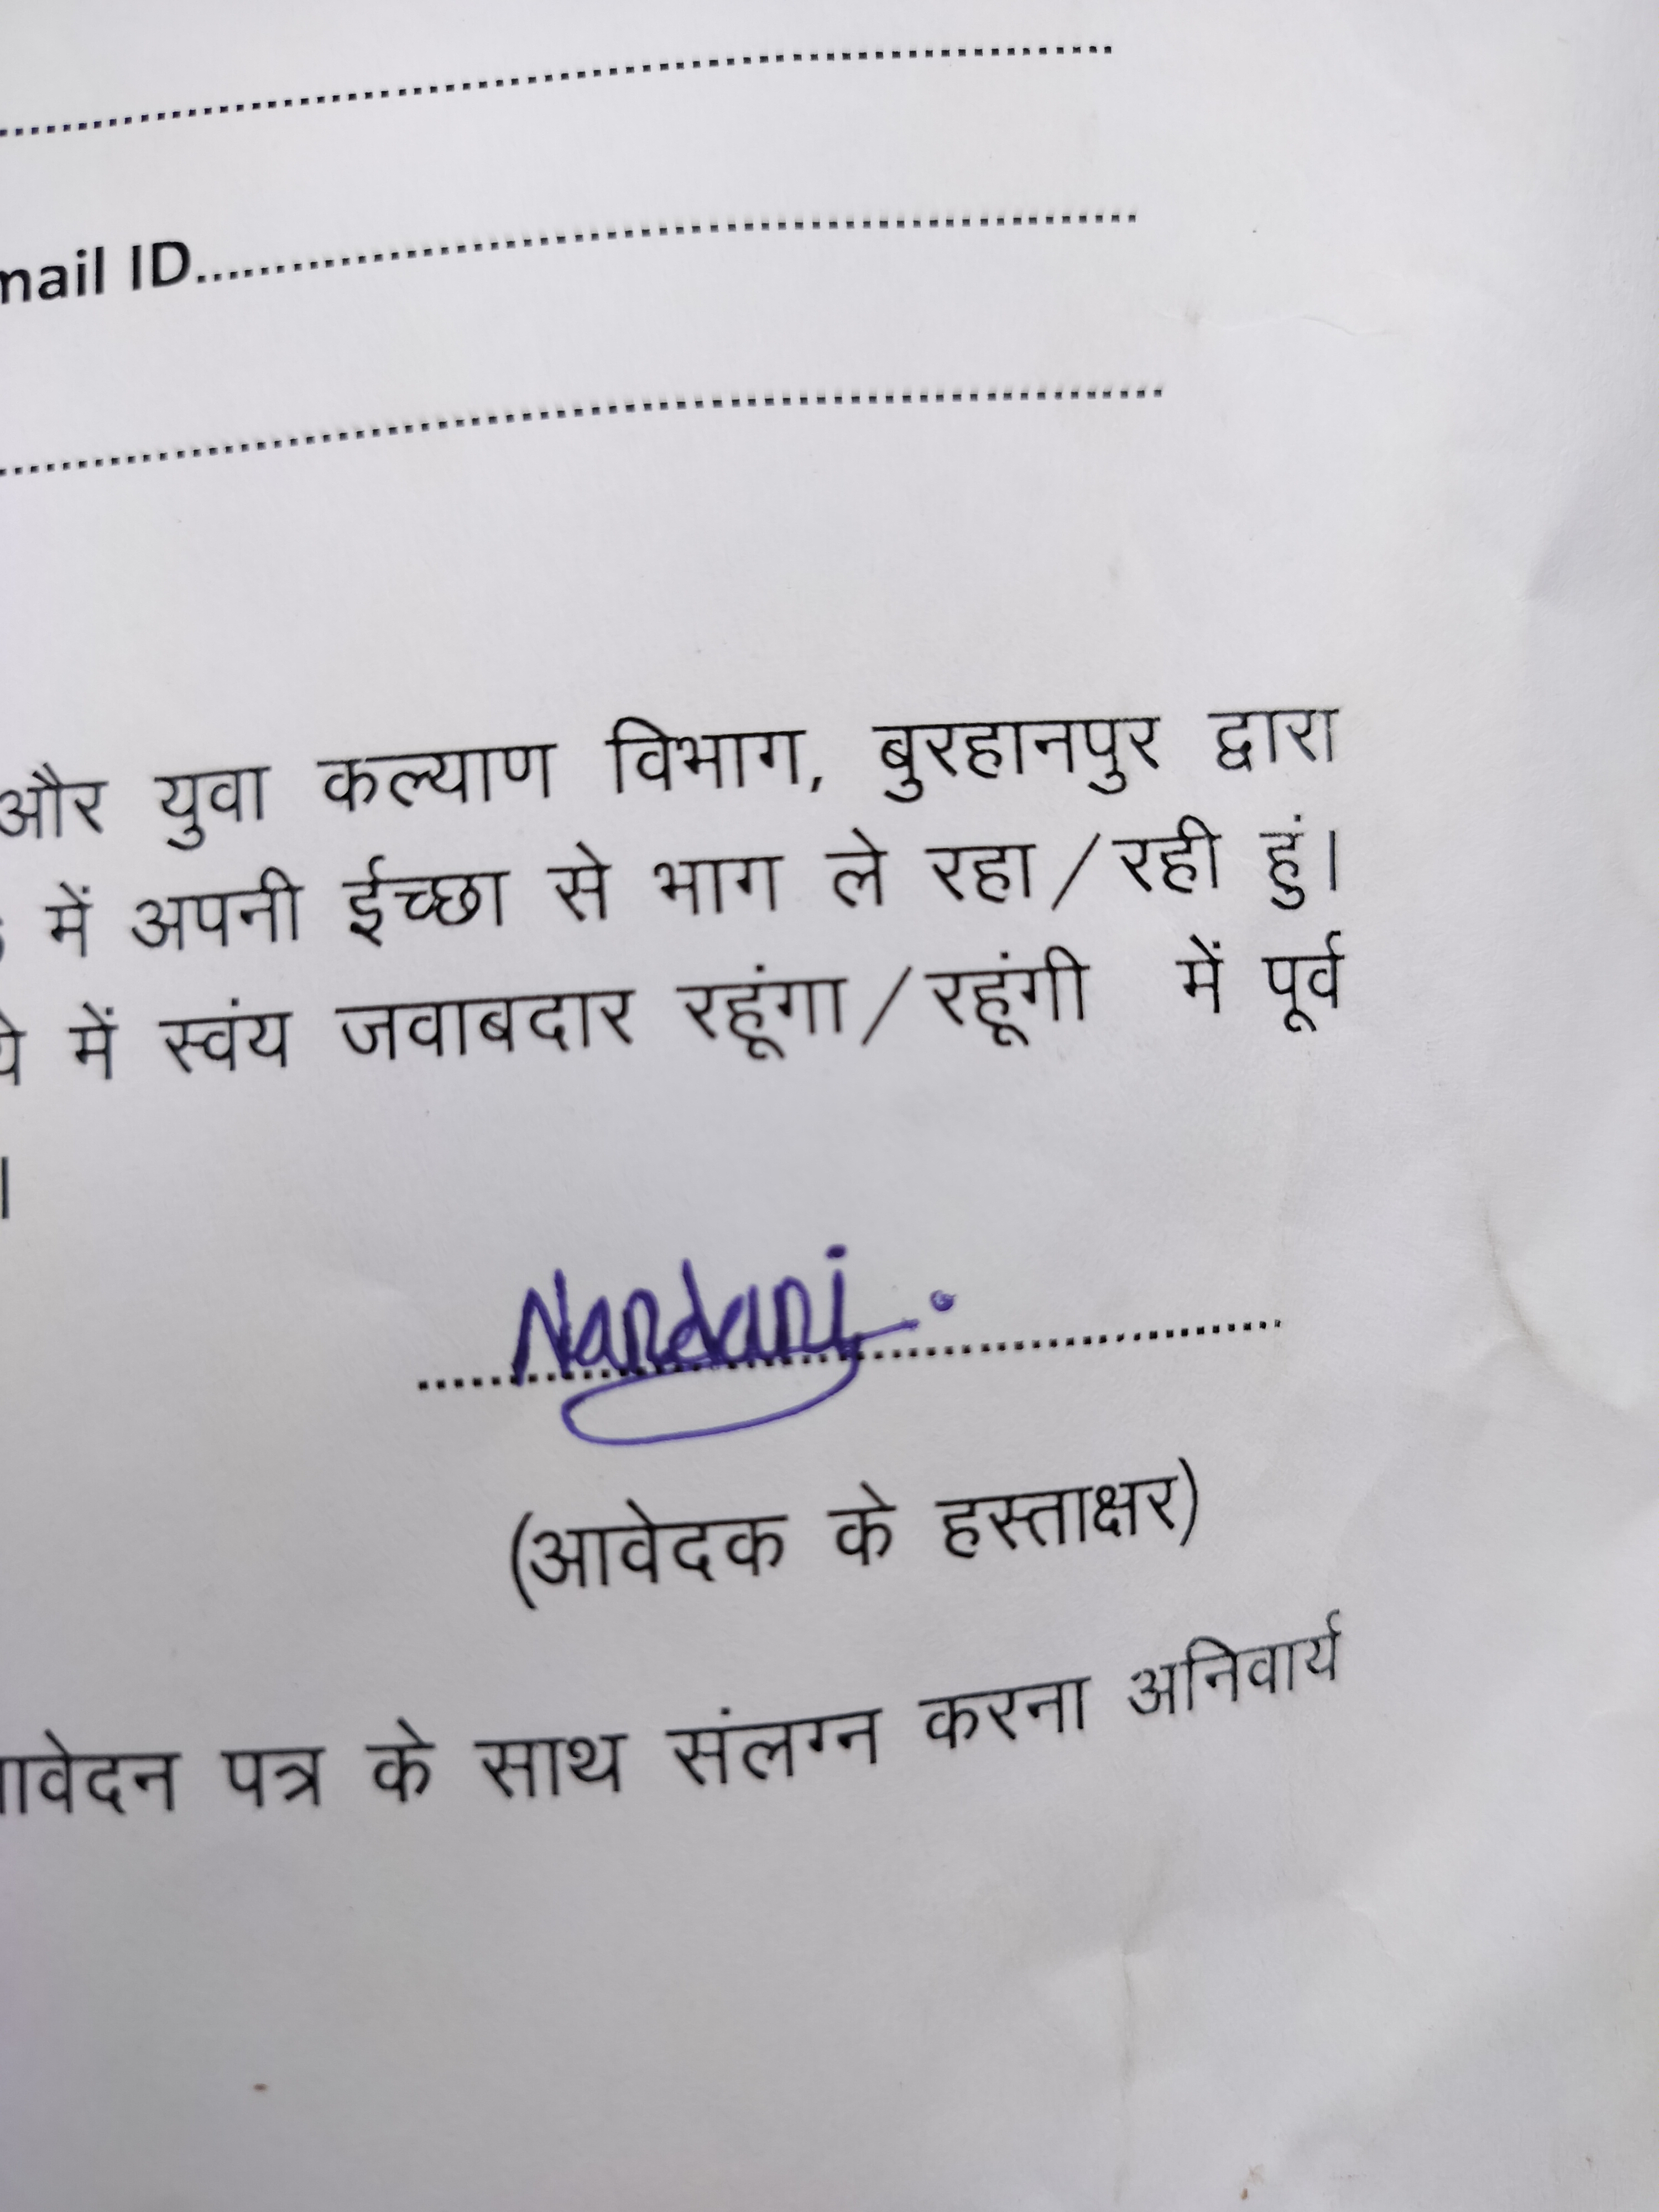 mail ID
और युवा कल्याण विभाग, बुरहानपुर द्वारा
में अपनी ईच्छा से भाग ले रहा/रही हुं।
में स्वंय जवाबदार रहूंगा/रहूंगी में पूर्व
।
Nandani
(आवेदक के हस्ताक्षर)
आवेदन पत्र के साथ संलग्न करना अनिवार्य